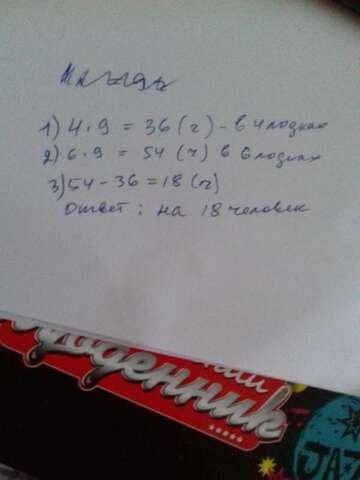 1) 4 · 9 = 36 (ч) - в 4 лодках
2) 6 · 9 = 54 (ч) в 6 лодках
3) 54 - 36 = 18 (ч)
Ответ: на 18 человек
щоденник
JAZ